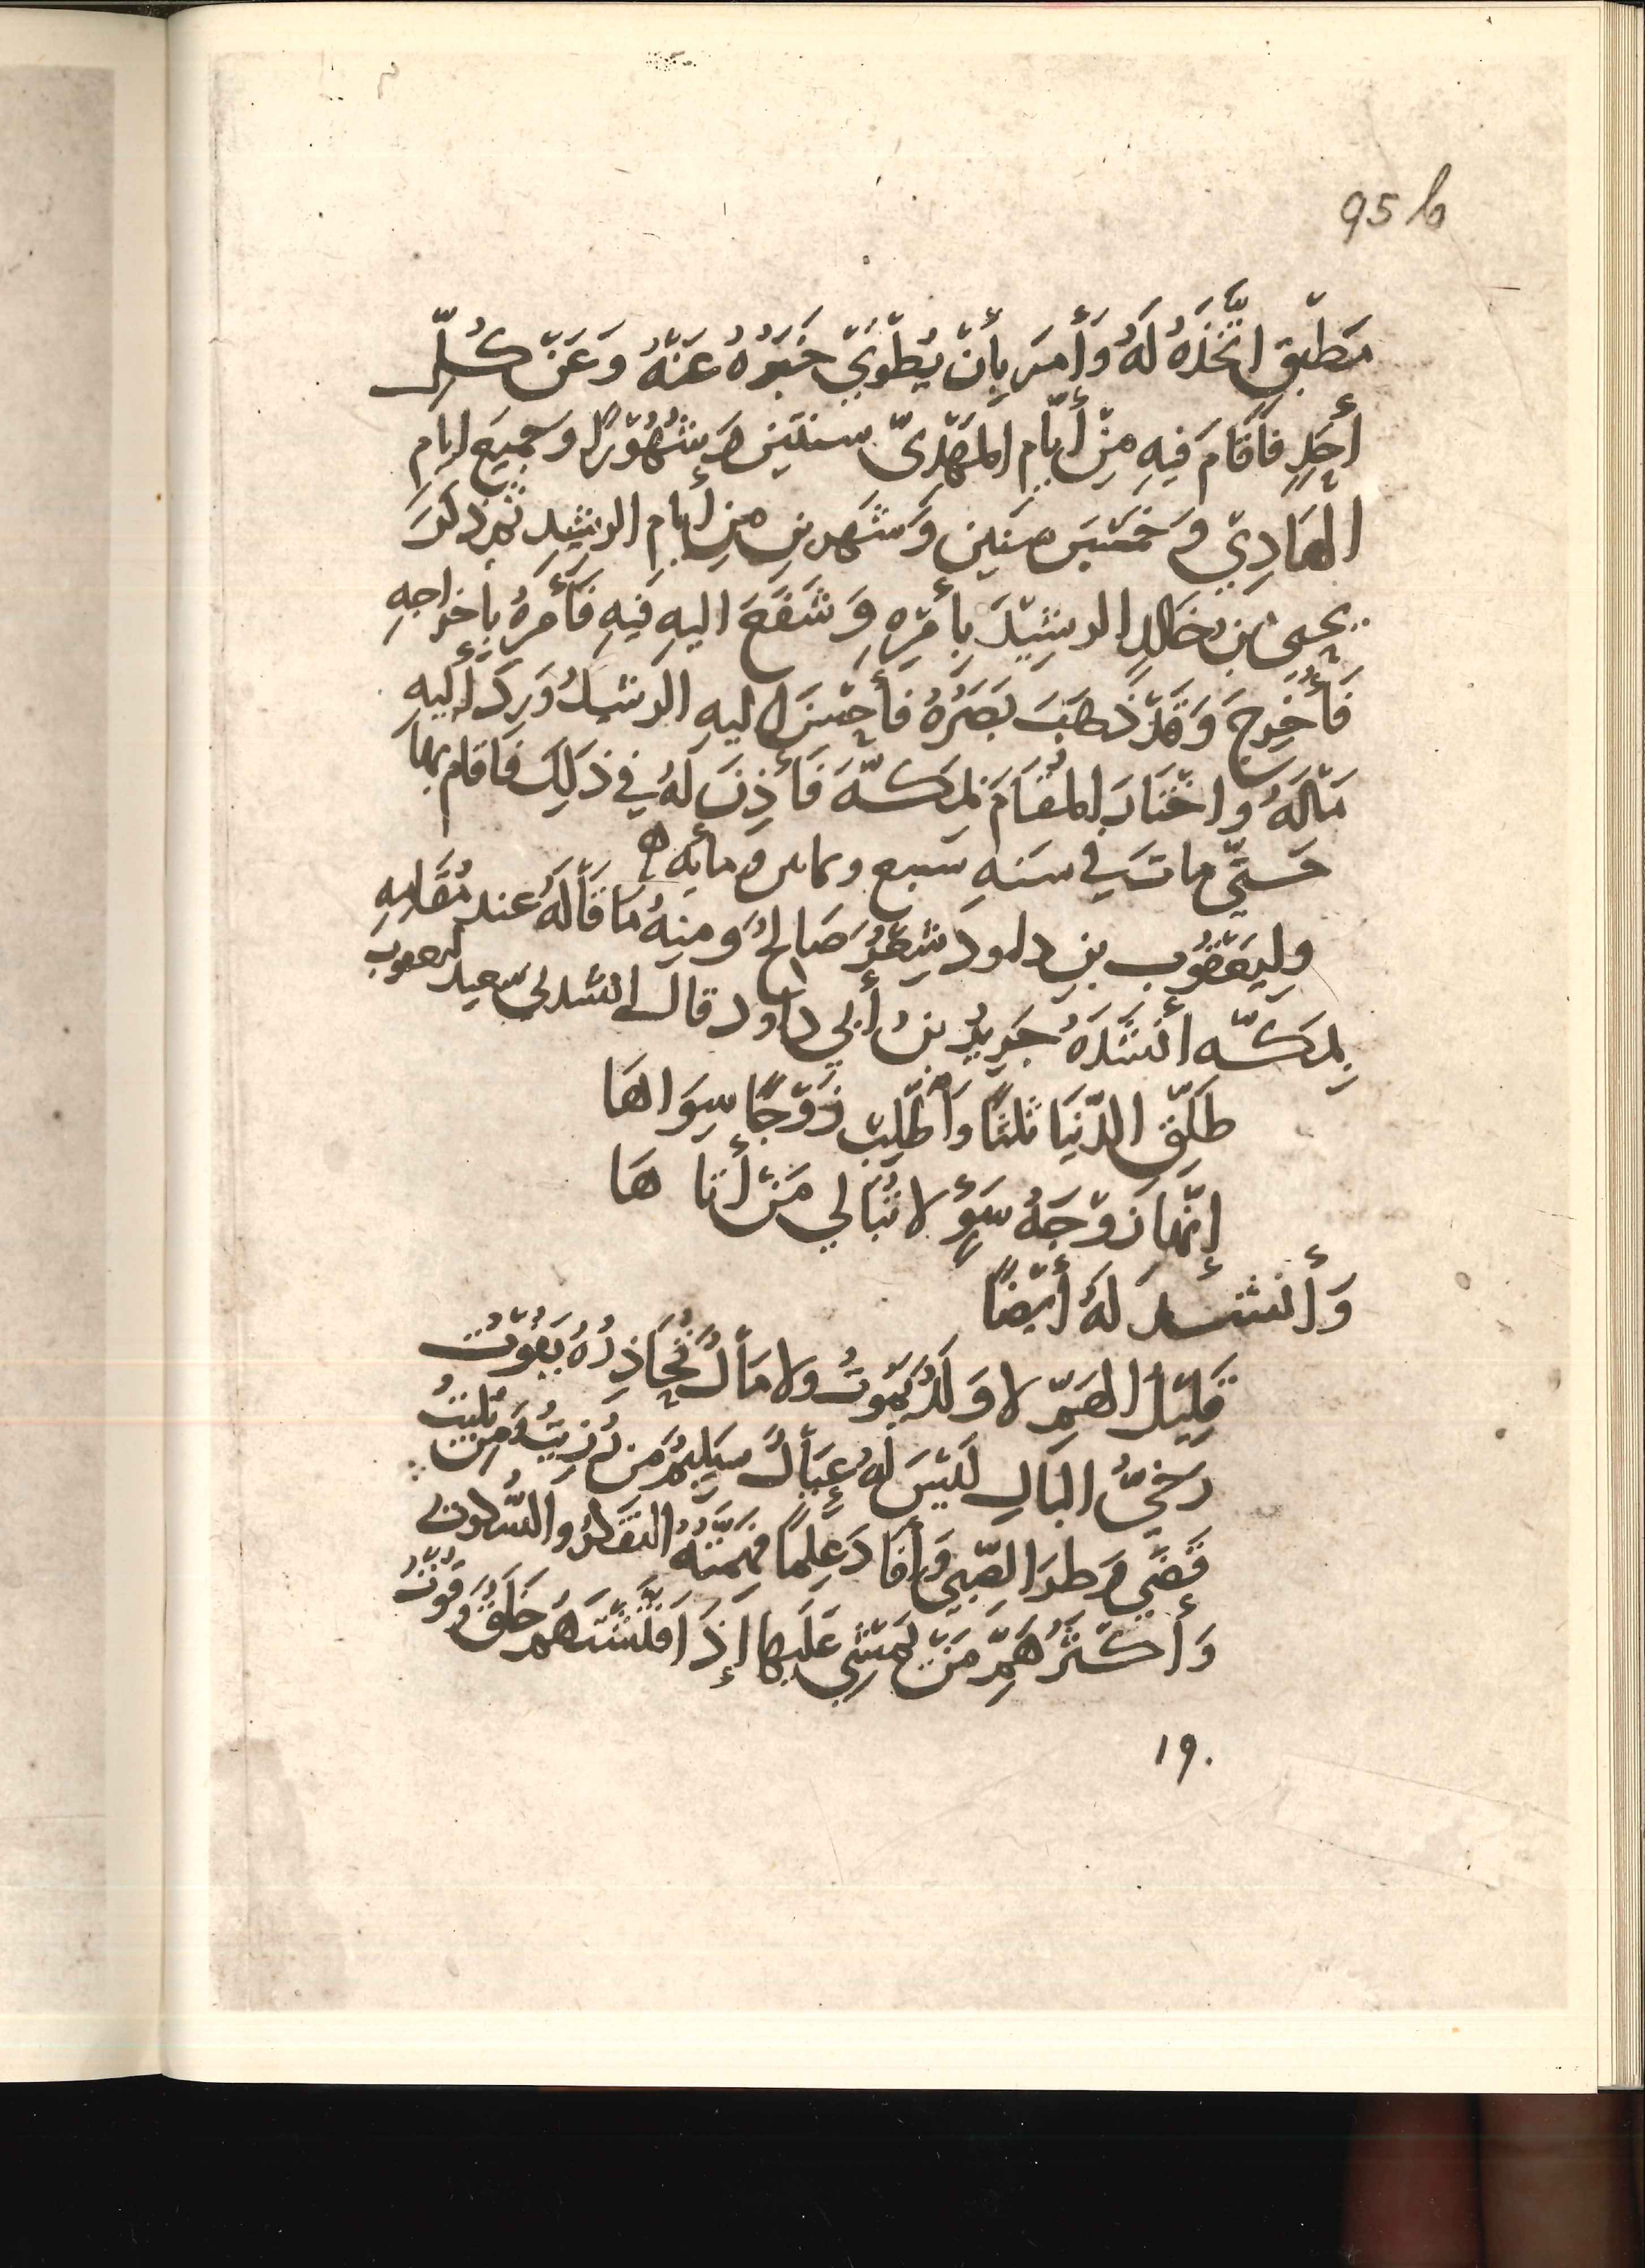 95 b
مَطْبَقٍ اتَّخَذَهُ لَهُ وَأَمَرَ بِأَنْ يُطْوَىْ خَبَرُهُ عَنْهُ وَعَنْ كُلِّ
أَحَدٍ فَأَقَامَ فِيهِ مِنْ أَيَّامِ الْمَهْدِىّ سنتَين وَشُهُوْرًا وجَمِيعَ ايامِ
الْهَادِيْ وَخَمْسَ سنين وَشهرينِ منِ أيامِ الرشِيدِ ثم ذكرَ
يحيى بن خَالدٍ الرشِيْدَ بِأَمْرِهِ وَشَفَعَ اليهِ فيهِ فَأَمَرَ بِإخراجِهِ
فَأُخْرِجَ وَقَدْ ذَهَبَ بَصَرُهُ فَأَحْسَنَ اليهِ الرشيدُ وَرد إليهِ
مَالَهُ واخْتَارَ المُقَامَ بِمَكَّةَ فَأَذِنَ لَهُ فِي ذَلِكَ فَاقام بها
حَتّي مات في سَنهِ سَبع وثمانين ومائه ه
وِليَعْقُوب بنِ داودَ شِعْرٌ صَالحٌ وَمنِهُ مَا قَالَهُ عند مُقَامِهِ
بِمَكَّه أَنْشَدَهُ جَرِيرُ بن أبي داود قال انشدني سعيد ليعقوب
طَلِّقِ الدّنيَا ثلثًا وَاطْلِبْ زَوْجًا سِوَاهَا
إنّها زَوْجَهُ سَوْءٍ لا تُبَالي مَنْ أتاهَا
وَأنشد لَهُ أيْضًا
قَلِيْلُ الهَمِّ لا وَلَدٌ يَمُوتُ ولا مَالٌ يُحَاذِرُهُ يَفُوْتُ
رَخِيُّ البَالِ لَيْسَ لَهُ عِيَالٌ سَلِيمٌ مَن
قَضَى وَطَرَ الصِّبى وَأفَادَ عِلمًا فَهِمَّتُهُ التفَكُّرُ والسُّكوت
وَأكْثَرُ هَمِّ مَنْ يَمْشِي عَلَيها إذَا فَتَّشْتَهُم خَلَقٌ وَقُوْتُ
١٩٠